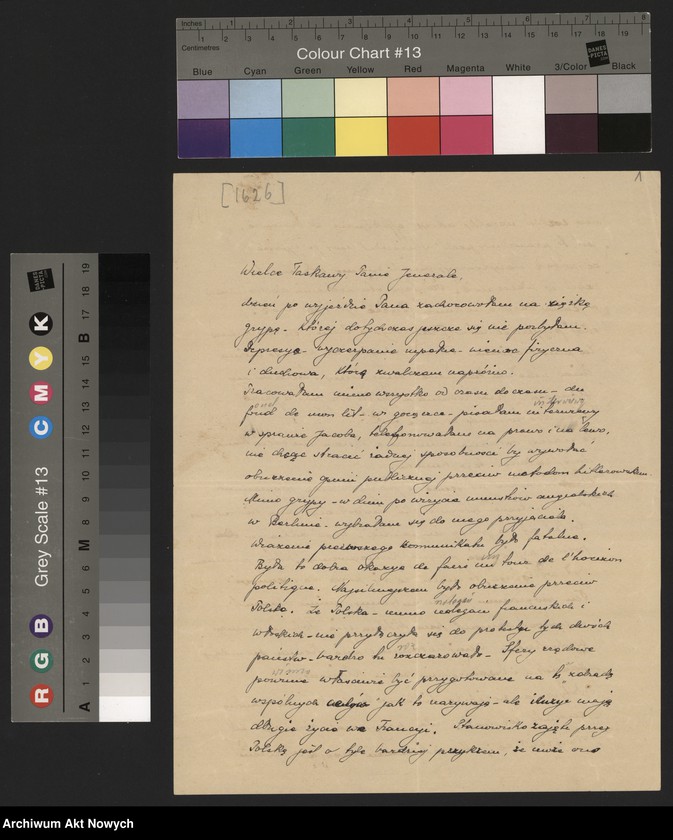 Inches 1 2 3 4 5 6 7 8
Centimetres 1 2 3 4 5 6 7 8 9 10 11 12 13 14 15 16 17 18 19
Colour Chart #13
DANES-PICTA
Blue Cyan Green Yellow Red Magenta White 3/Color Black
[1626]
1
Wielce Łaskawy Panie Jenerale,
dzień po wyjeździe Pana zachorowałam na ciężką
grypę - której dotychczas jeszcze się nie pozbyłam.
Depresya - wyczerpanie - niemoc fizyczna
i duchowa, którą zwalczam napróżno.
Pracowałam mimo wszystko od czasu do czasu - du
fond de mon lit - w gorączce - pisałam interviewy
w sprawie Jacoba, telefonowałam na prawo i na lewo,
nie chcąc stracić żadnej sposobności by wywołać
oburzenie opinii publicznej przeciw metodom hitlerowskim.
Mimo grypy - w dniu po wizycie ministrów angielskich
w Berlinie - wybrałam się do mego przyjaciela.
Wrażenie pierwszego komunikatu było fatalne.
Była to dobra okazya de faire un tour de l'horizon
politique. Najsilniejszem było oburzenie przeciw
Polsce. Że Polska - mimo nalegań francuskich i
włoskich - nie przyłączyła się do protestu tych dwóch
państw - bardzo tu rozczarowało - Sfery rządowe
powinne właściwie być przygotowane na tę zdradę
wspólnych celów jak to nazywają - ale iluzye mają
długie życie we Francyi. Stanowisko zajęte przez
Polskę jest o tyle bardziej przykrem, że może ono
Grey Scale #13
DANES-PICTA
R G B C M Y K
A 1 2 3 4 5 6 M 8 9 10 11 12 13 14 15 B 17 18 19
Archiwum Akt Nowych